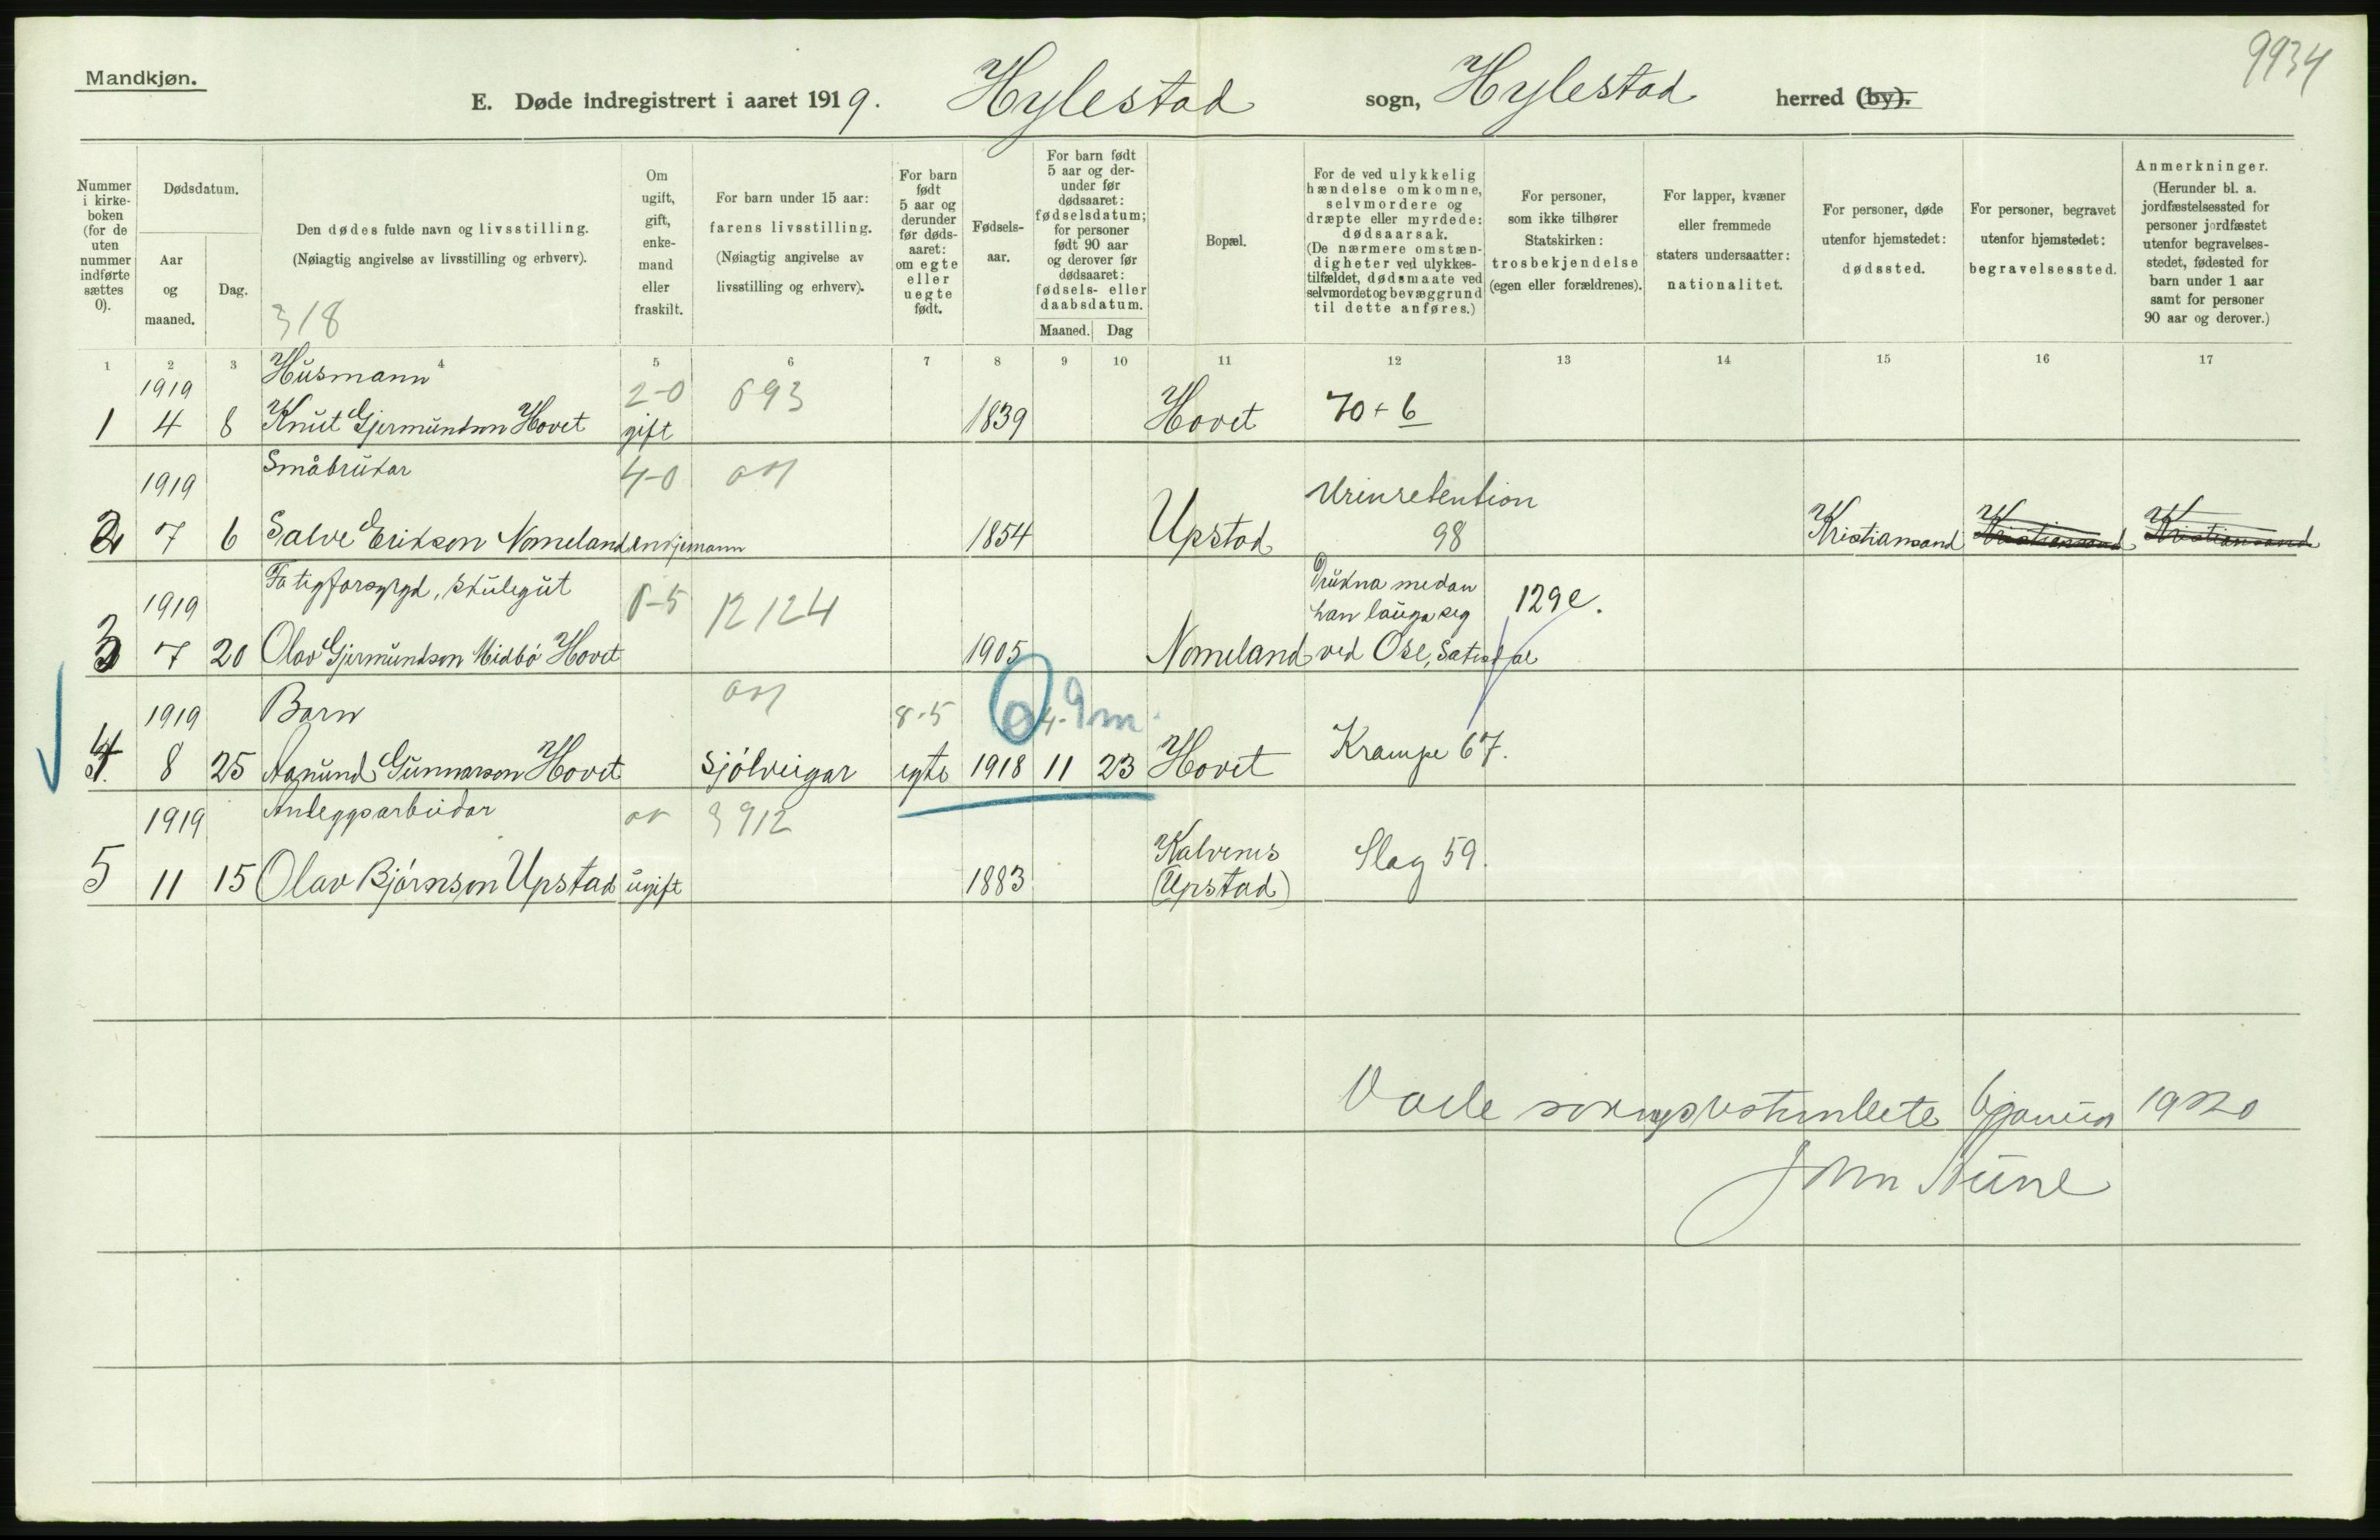 9934
Mandkjøn.
E. Døde indregistrert i aaret 1919. Hylestad sogn, Hylestad herred (by).
Nummer i kirke-boken (for de uten nummer indførte sættes 0).
Dødsdatum.
Aar og maaned.
Dag.
Den dødes fulde navn og livsstilling.
(Nøiagtig angivelse av livsstilling og erhverv).
318
Om ugift, gift, enke-mand eller fraskilt.
For barn under 15 aar: farens livsstilling. (Nøiagtig angivelse av livsstilling og erhverv).
For barn født 5 aar og derunder før døds-aaret: om egte eller uegte født.
Fødsels-aar.
For barn født 5 aar og der-under før dødsaaret: fødselsdatum; for personer født 90 aar og derover før dødsaaret: fødsels- eller daabsdatum.
Maaned. Dag
Bopæl.
For de ved ulykkelig hændelse omkomne, selvmordere og dræpte eller myrdede: dødsaarsak. (De nærmere omstæn-digheter ved ulykkes-tilfældet, dødsmaate ved selvmordet og bevæggrund til dette anføres.)
For personer, som ikke tilhører Statskirken: trosbekjendelse (egen eller forældrenes).
For lapper, kvæner eller fremmede staters undersaatter: nationalitet.
For personer, døde utenfor hjemstedet: dødssted.
For personer, begravet utenfor hjemstedet: begravelsessted.
Anmerkninger. (Herunder bl. a. jordfæstelsessted for personer jordfæstet utenfor begravelses-stedet, fødested for barn under 1 aar samt for personer 90 aar og derover.)
1 2 3 4 5 6 7 8 9 10 11 12 13 14 15 16 17
1919 Husmann 2-0 693
1 4 8 Knut Gjermundson Hovet gift 1839 Hovet 70 + 6
1919 Småbrukar 4-0 Urinretention
2 7 6 Salve Erikson Nomeland enkjemann 1854 Upstad 98 Kristiansand Kristiansand Kristiansand
1919 Fatigforsyrgd, skulegut 8-5 12124 Drukna medan han lauga seg 129e.
3 7 20 Olav Gjermundson Midbö Hovet 1905 Nomeland ved Ose, Sætesdal
1919 Barn 8-5 0 4-9m.
4. 8 25 Aanund Gunnarson Hovet Sjölveigar egte 1918 11 23 Hovet Krampe 67.
1919 Anleggsarbeidar 3912
5 11 15 Olav Björnson Upstad ugift 1883 Kalvenes (Upstad) Slag 59.
Valle 6 januar 1920
John Aune